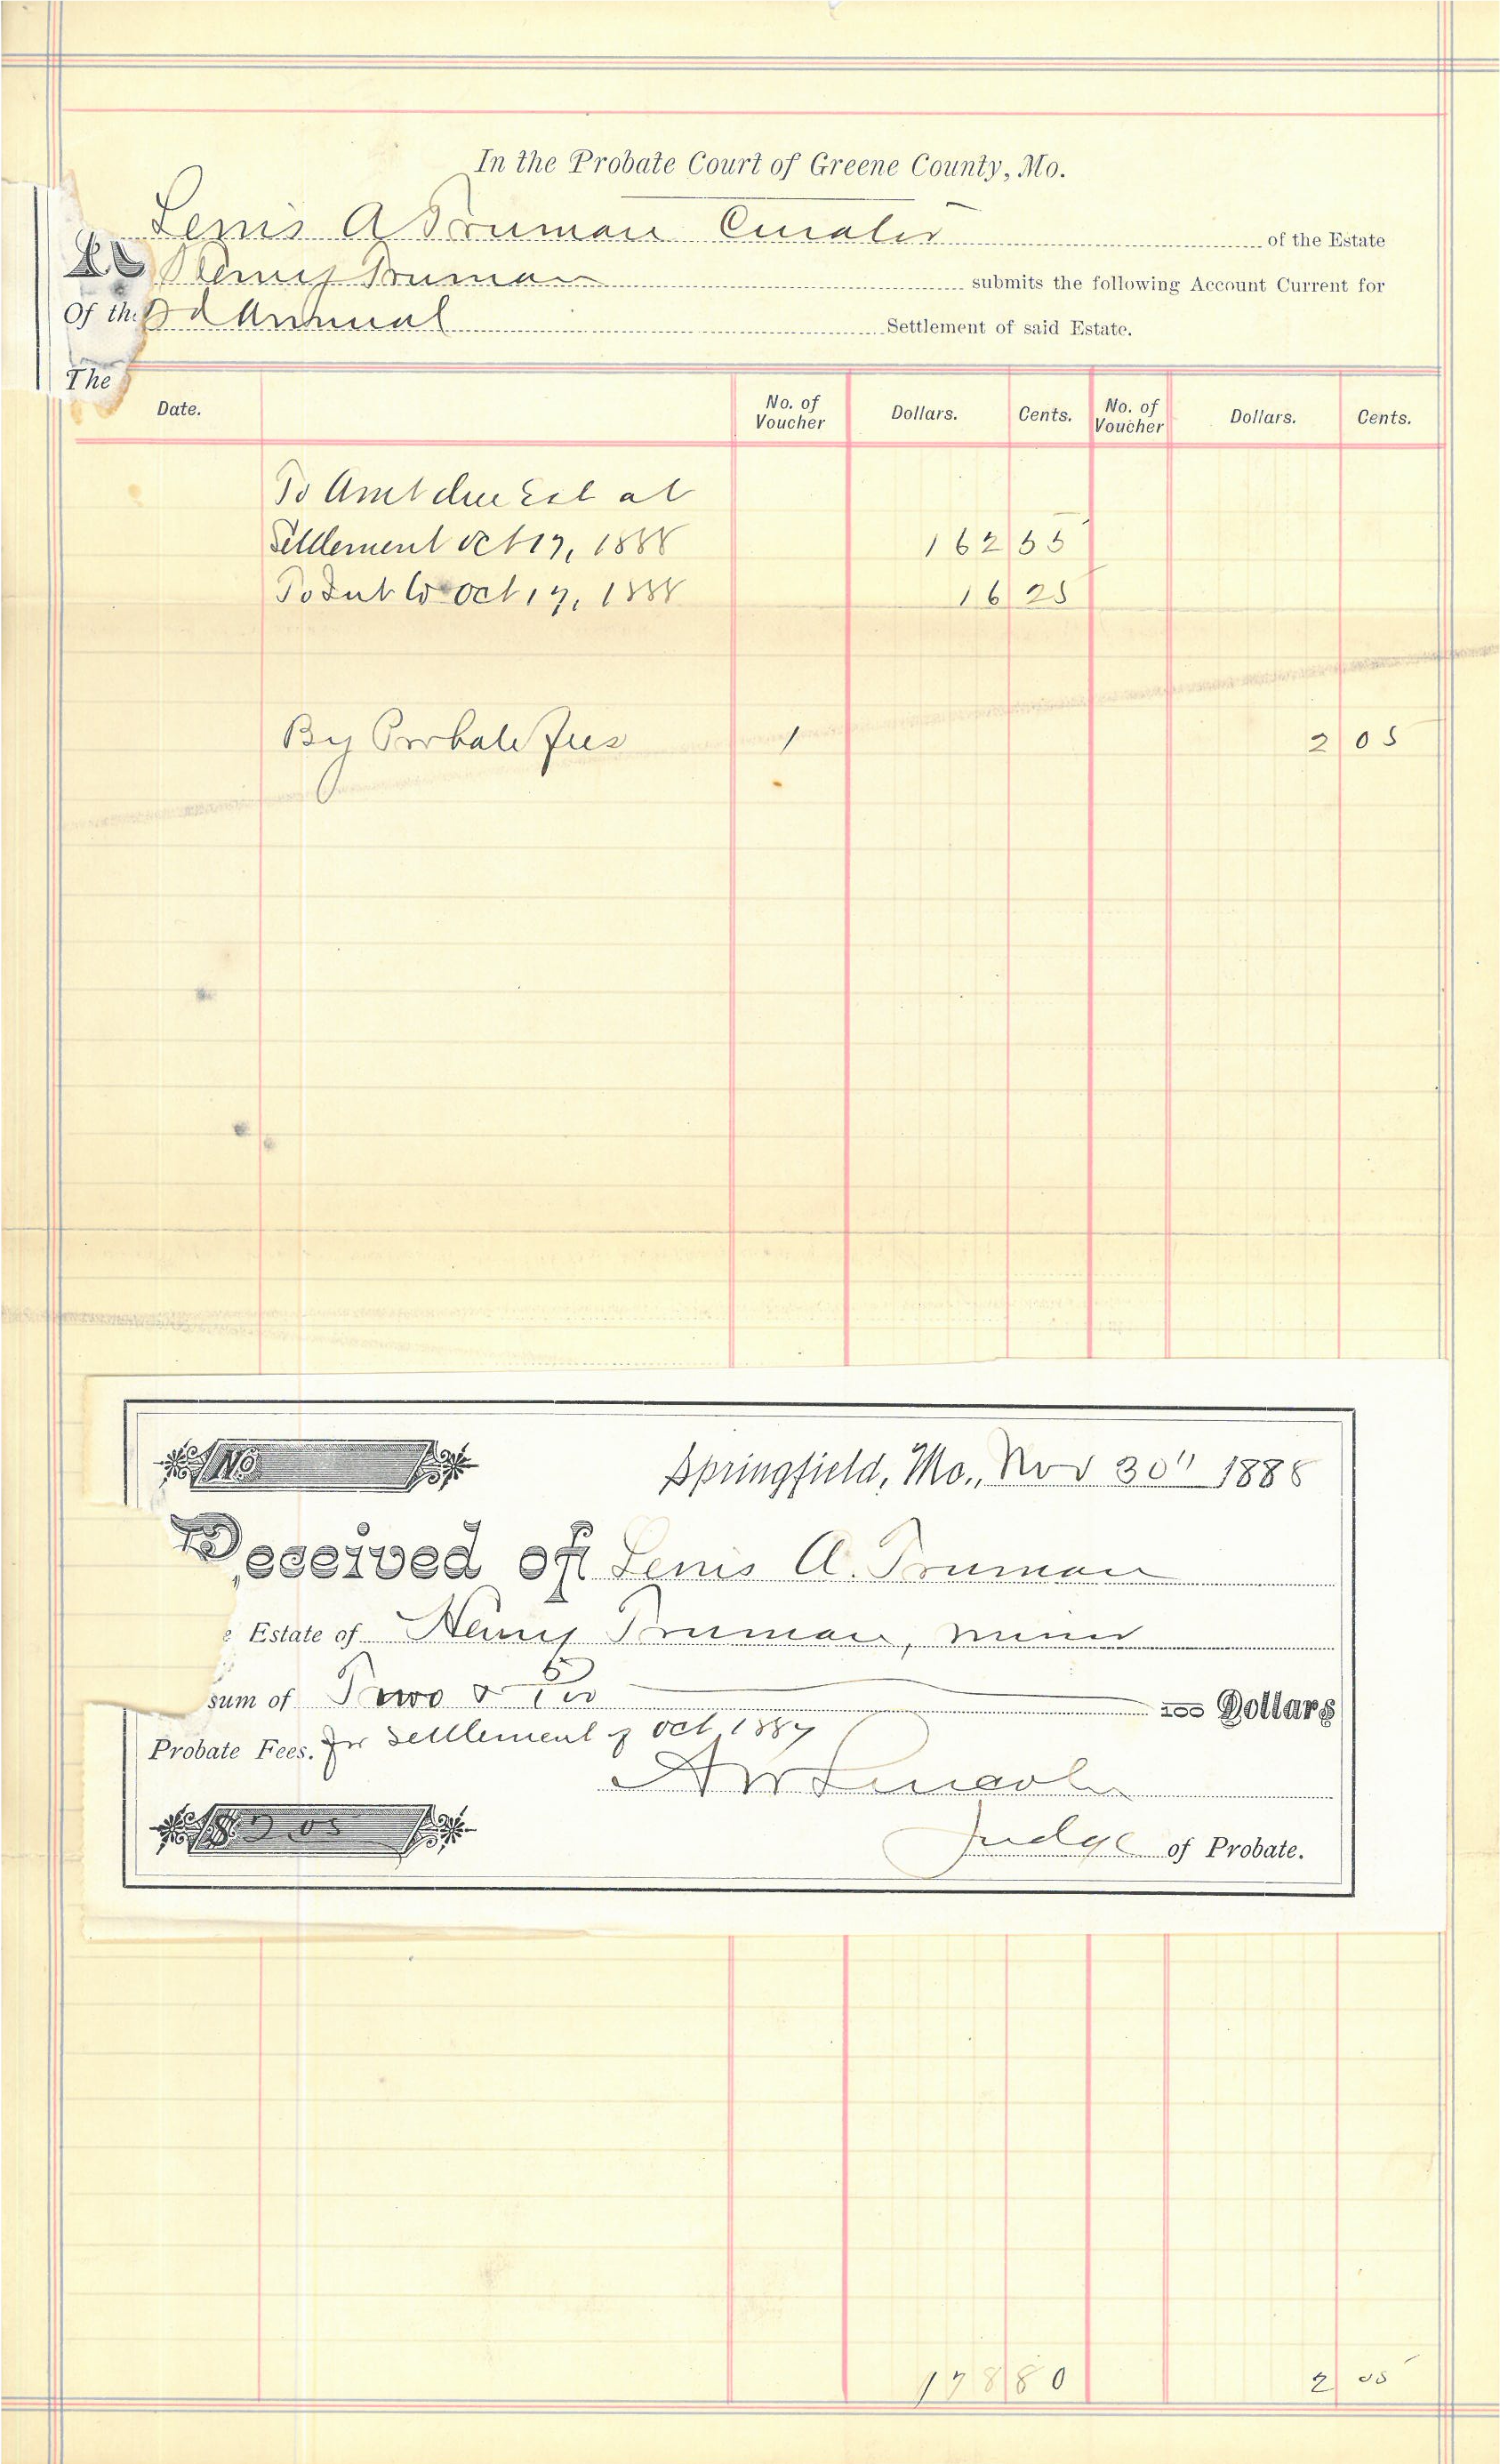 In the Probate Court of Greene County, Mo.
Lewis A Truman Curator of the Estate
Henry Truman submits the following Account Current for
Of the 2d Annual Settlement of said Estate.
The
Date. No. of Voucher Dollars. Cents. No. of Voucher Dollars. Cents.
To Amt due Est at
Settlement Oct 17, 1888 162 55
To Int to Oct 17, 1888 16 25
By Probate fees 1 2 05
No
Springfield, Mo., Nov 30" 1888
Received of Lewis A. Truman
e Estate of Henry Truman, minor
sum of Two & 5/100 100 Dollars
Probate Fees. for Settlement of Oct 1887
A W Lincoln
$2 05 Judge of Probate.
178 80 2 05